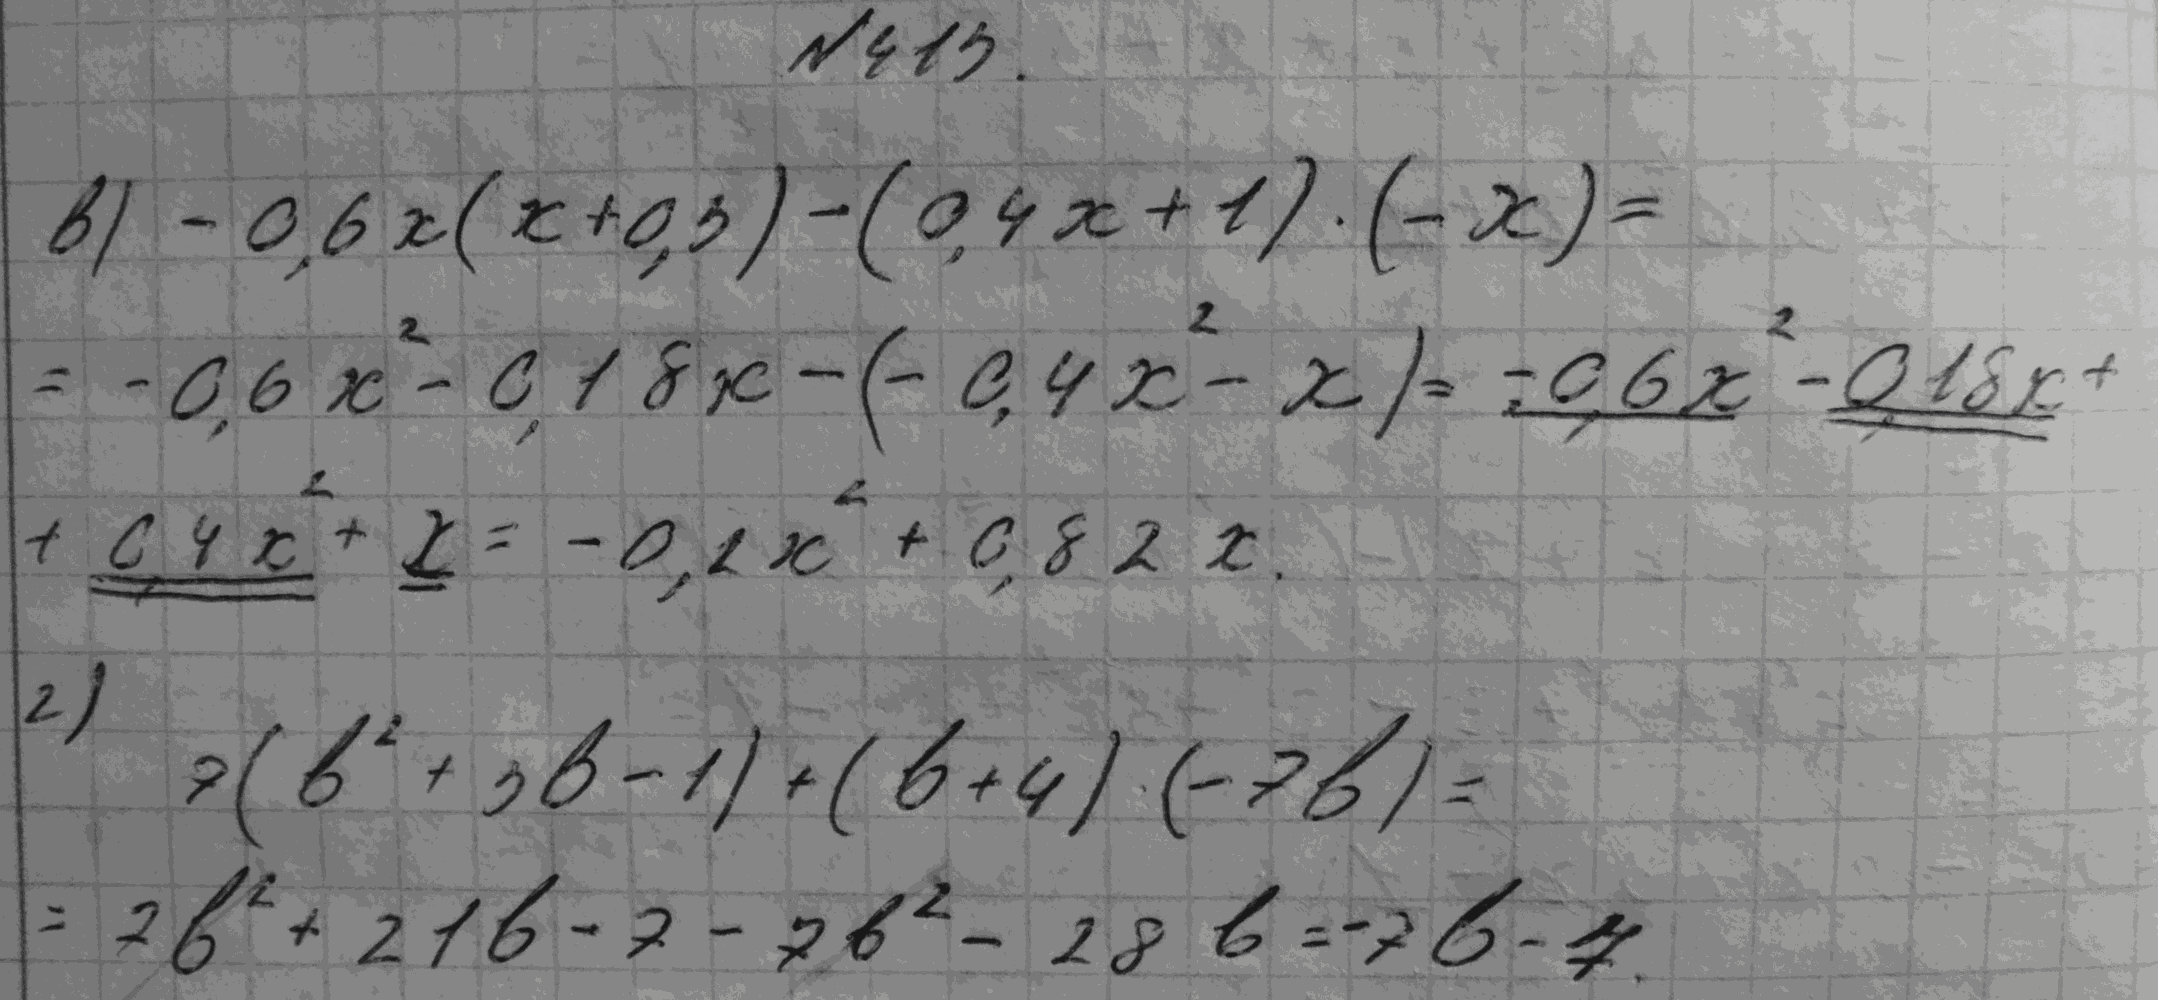 №413.
в) -0,6x(x+0,3)-(0,4x+1)·(-x)=
= -0,6x²-0,18x-(-0,4x²-x)= -0,6x²-0,18x+
+ 0,4x²+x= -0,2x²+0,82x.
г)
7(b²+3b-1)+(b+4)·(-7b)=
= 7b²+21b-7-7b²-28b=-7b-7.